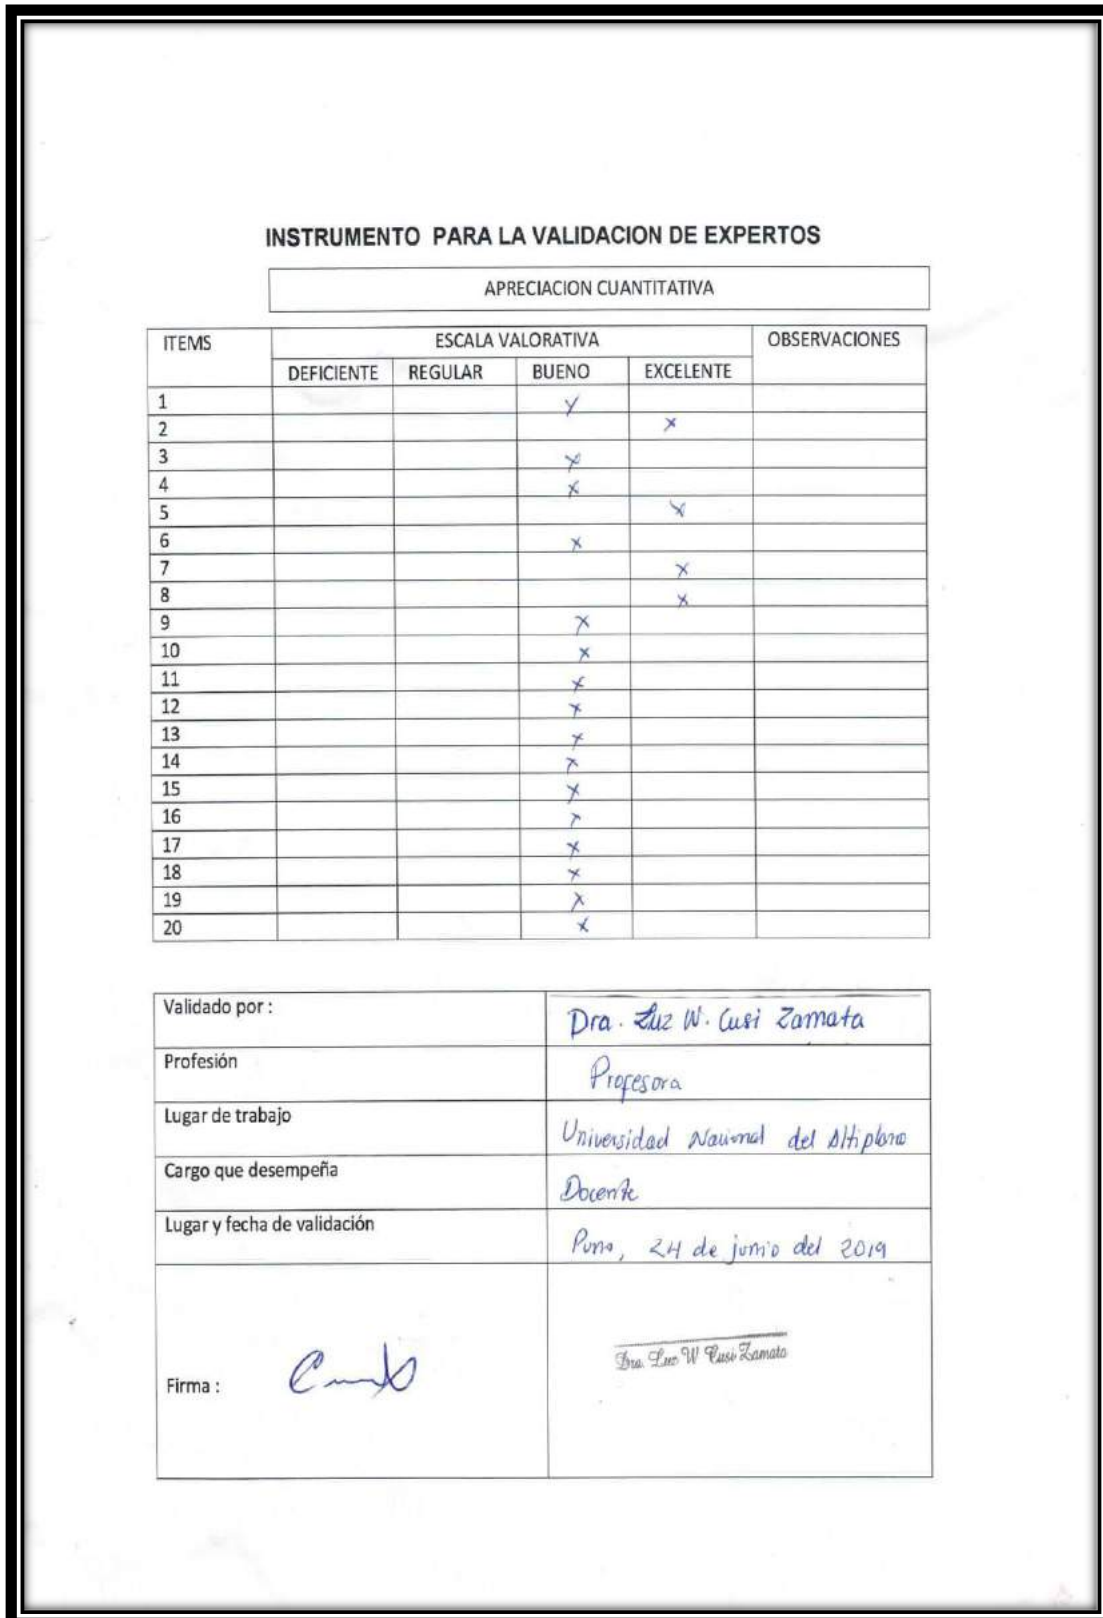 INSTRUMENTO PARA LA VALIDACION DE EXPERTOS
APRECIACION CUANTITATIVA
ITEMS ESCALA VALORATIVA OBSERVACIONES
DEFICIENTE REGULAR BUENO EXCELENTE
1 x
2 x
3 x
4 x
5 x
6 x
7 x
8 x
9 x
10 x
11 x
12 x
13 x
14 x
15 x
16 x
17 x
18 x
19 x
20 x
Validado por : Dra. Luz W. Cusi Zamata
Profesión Profesora
Lugar de trabajo Universidad Nacional del Altiplano
Cargo que desempeña Docente
Lugar y fecha de validación Puno, 24 de junio del 2019
Dra. Luz W Cusi Zamata
Firma :